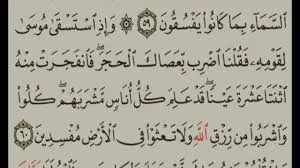 ٱلسَّمَآءِ بِمَا كَانُوا۟ يَفْسُقُونَ ٥٩ ۞ وَإِذِ ٱسْتَسْقَىٰ مُوسَىٰ
لِقَوْمِهِۦ فَقُلْنَا ٱضْرِب بِّعَصَاكَ ٱلْحَجَرَ ۖ فَٱنفَجَرَتْ مِنْهُ
ٱثْنَتَا عَشْرَةَ عَيْنًا ۖ قَدْ عَلِمَ كُلُّ أُنَاسٍ مَّشْرَبَهُمْ ۖ كُلُوا۟
وَٱشْرَبُوا۟ مِن رِّزْقِ ٱللَّهِ وَلَا تَعْثَوْا۟ فِى ٱلْأَرْضِ مُفْسِدِينَ ٦٠